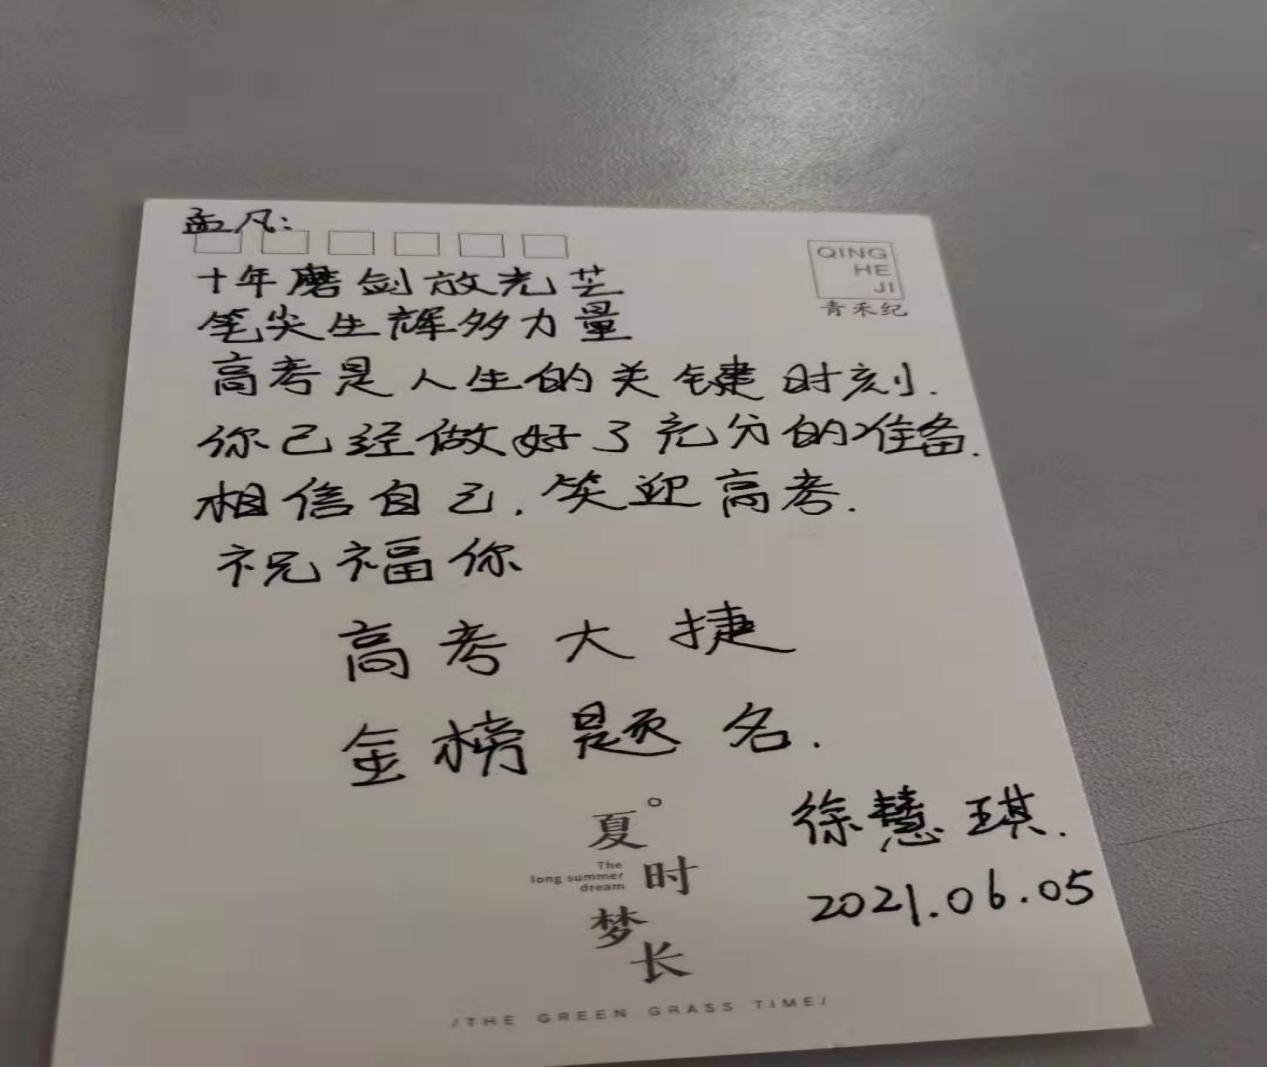 孟凡:
QING
HE
JI
青禾纪
十年磨剑放光芒
笔尖生辉多力量
高考是人生的关键时刻.
你已经做好了充分的准备.
相信自己,笑迎高考.
祝福你
高考大捷
金榜题名.
徐慧琪.
2021.06.05
夏
The
long summer
dream
时
梦
长
/THE GREEN GRASS TIME/